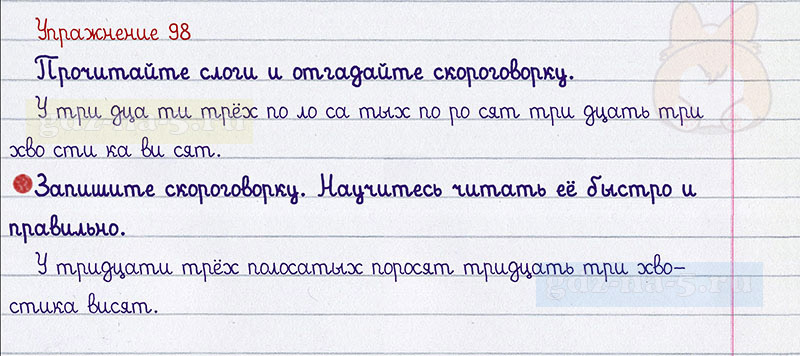 Упражнение 98
Прочитайте слоги и отгадайте скороговорку.
У три дца ти трёх по ло са тых по ро сят три дцать три
хво сти ка ви сят.
Запишите скороговорку. Научитесь читать её быстро и
правильно.
У тридцати трёх полосатых поросят тридцать три хво-
стика висят.
gdz-na-5.ru
gdz-na-5.ru